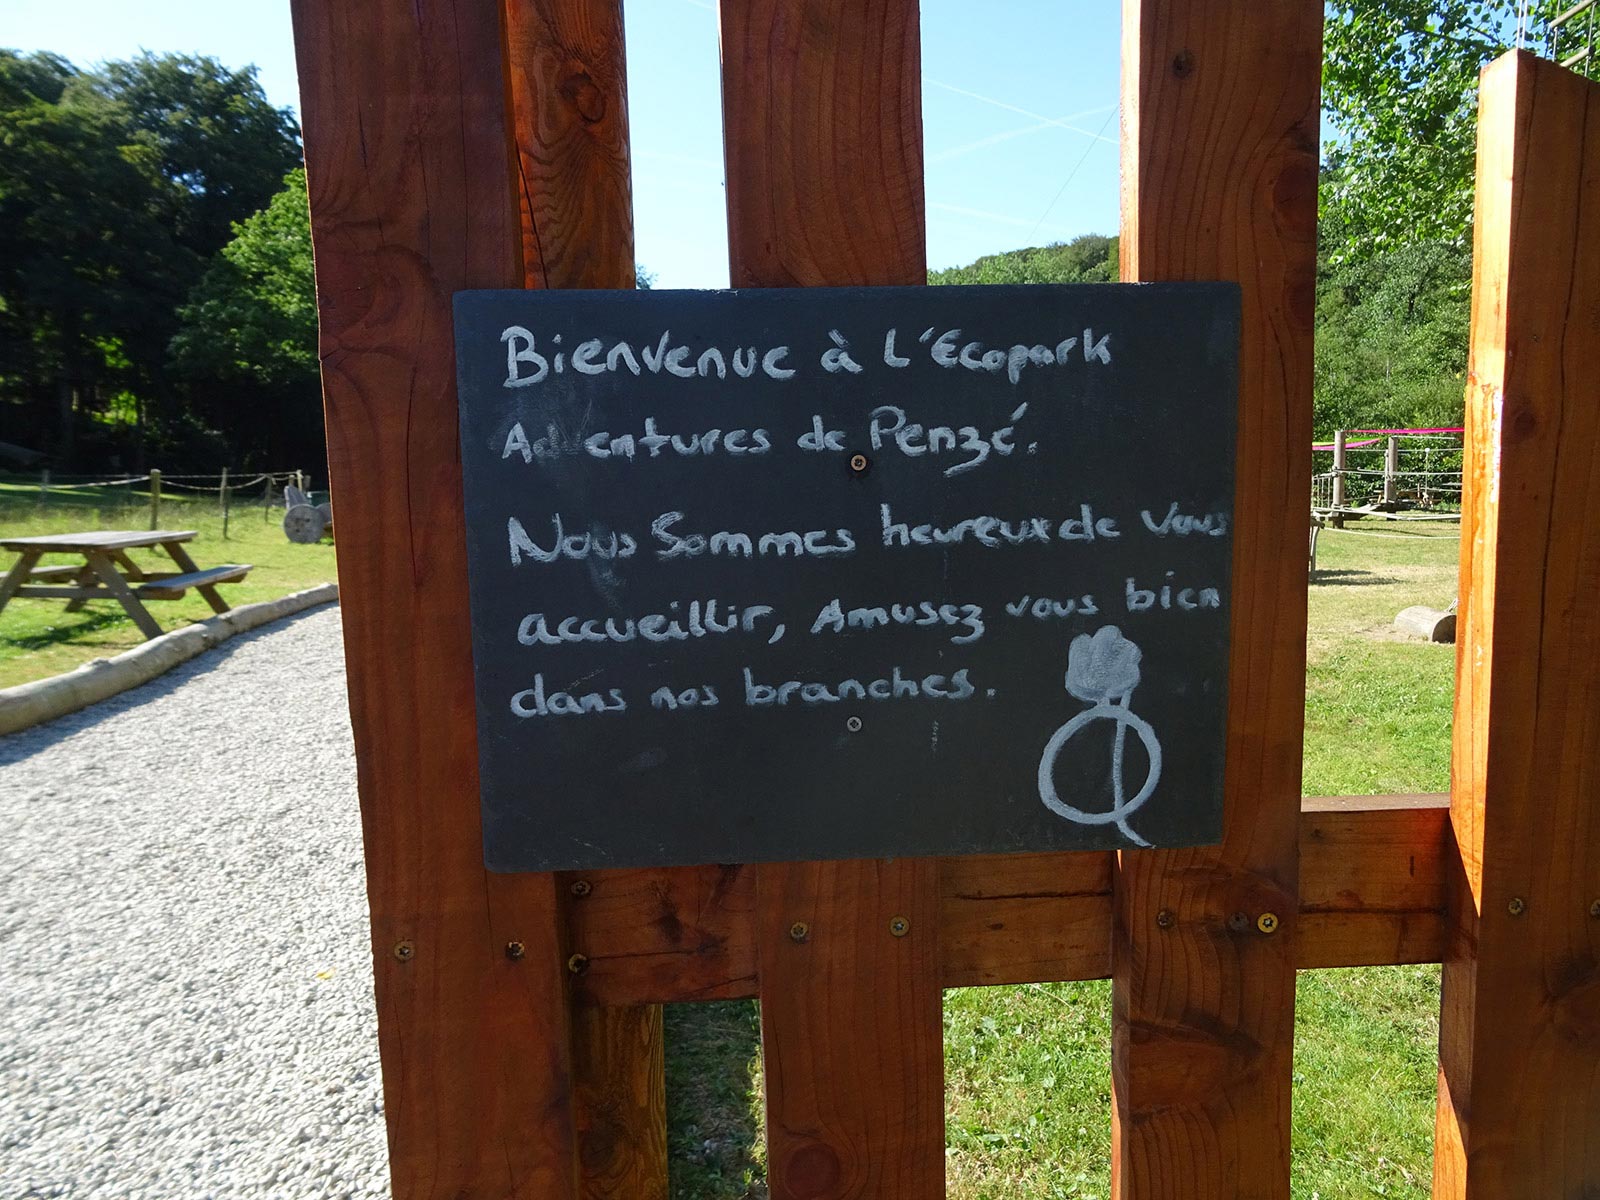 Bienvenue à L'Ecopark
Adventures de Penzé.
Nous Sommes heureux de vous
accueillir, Amusez vous bien
dans nos branches.